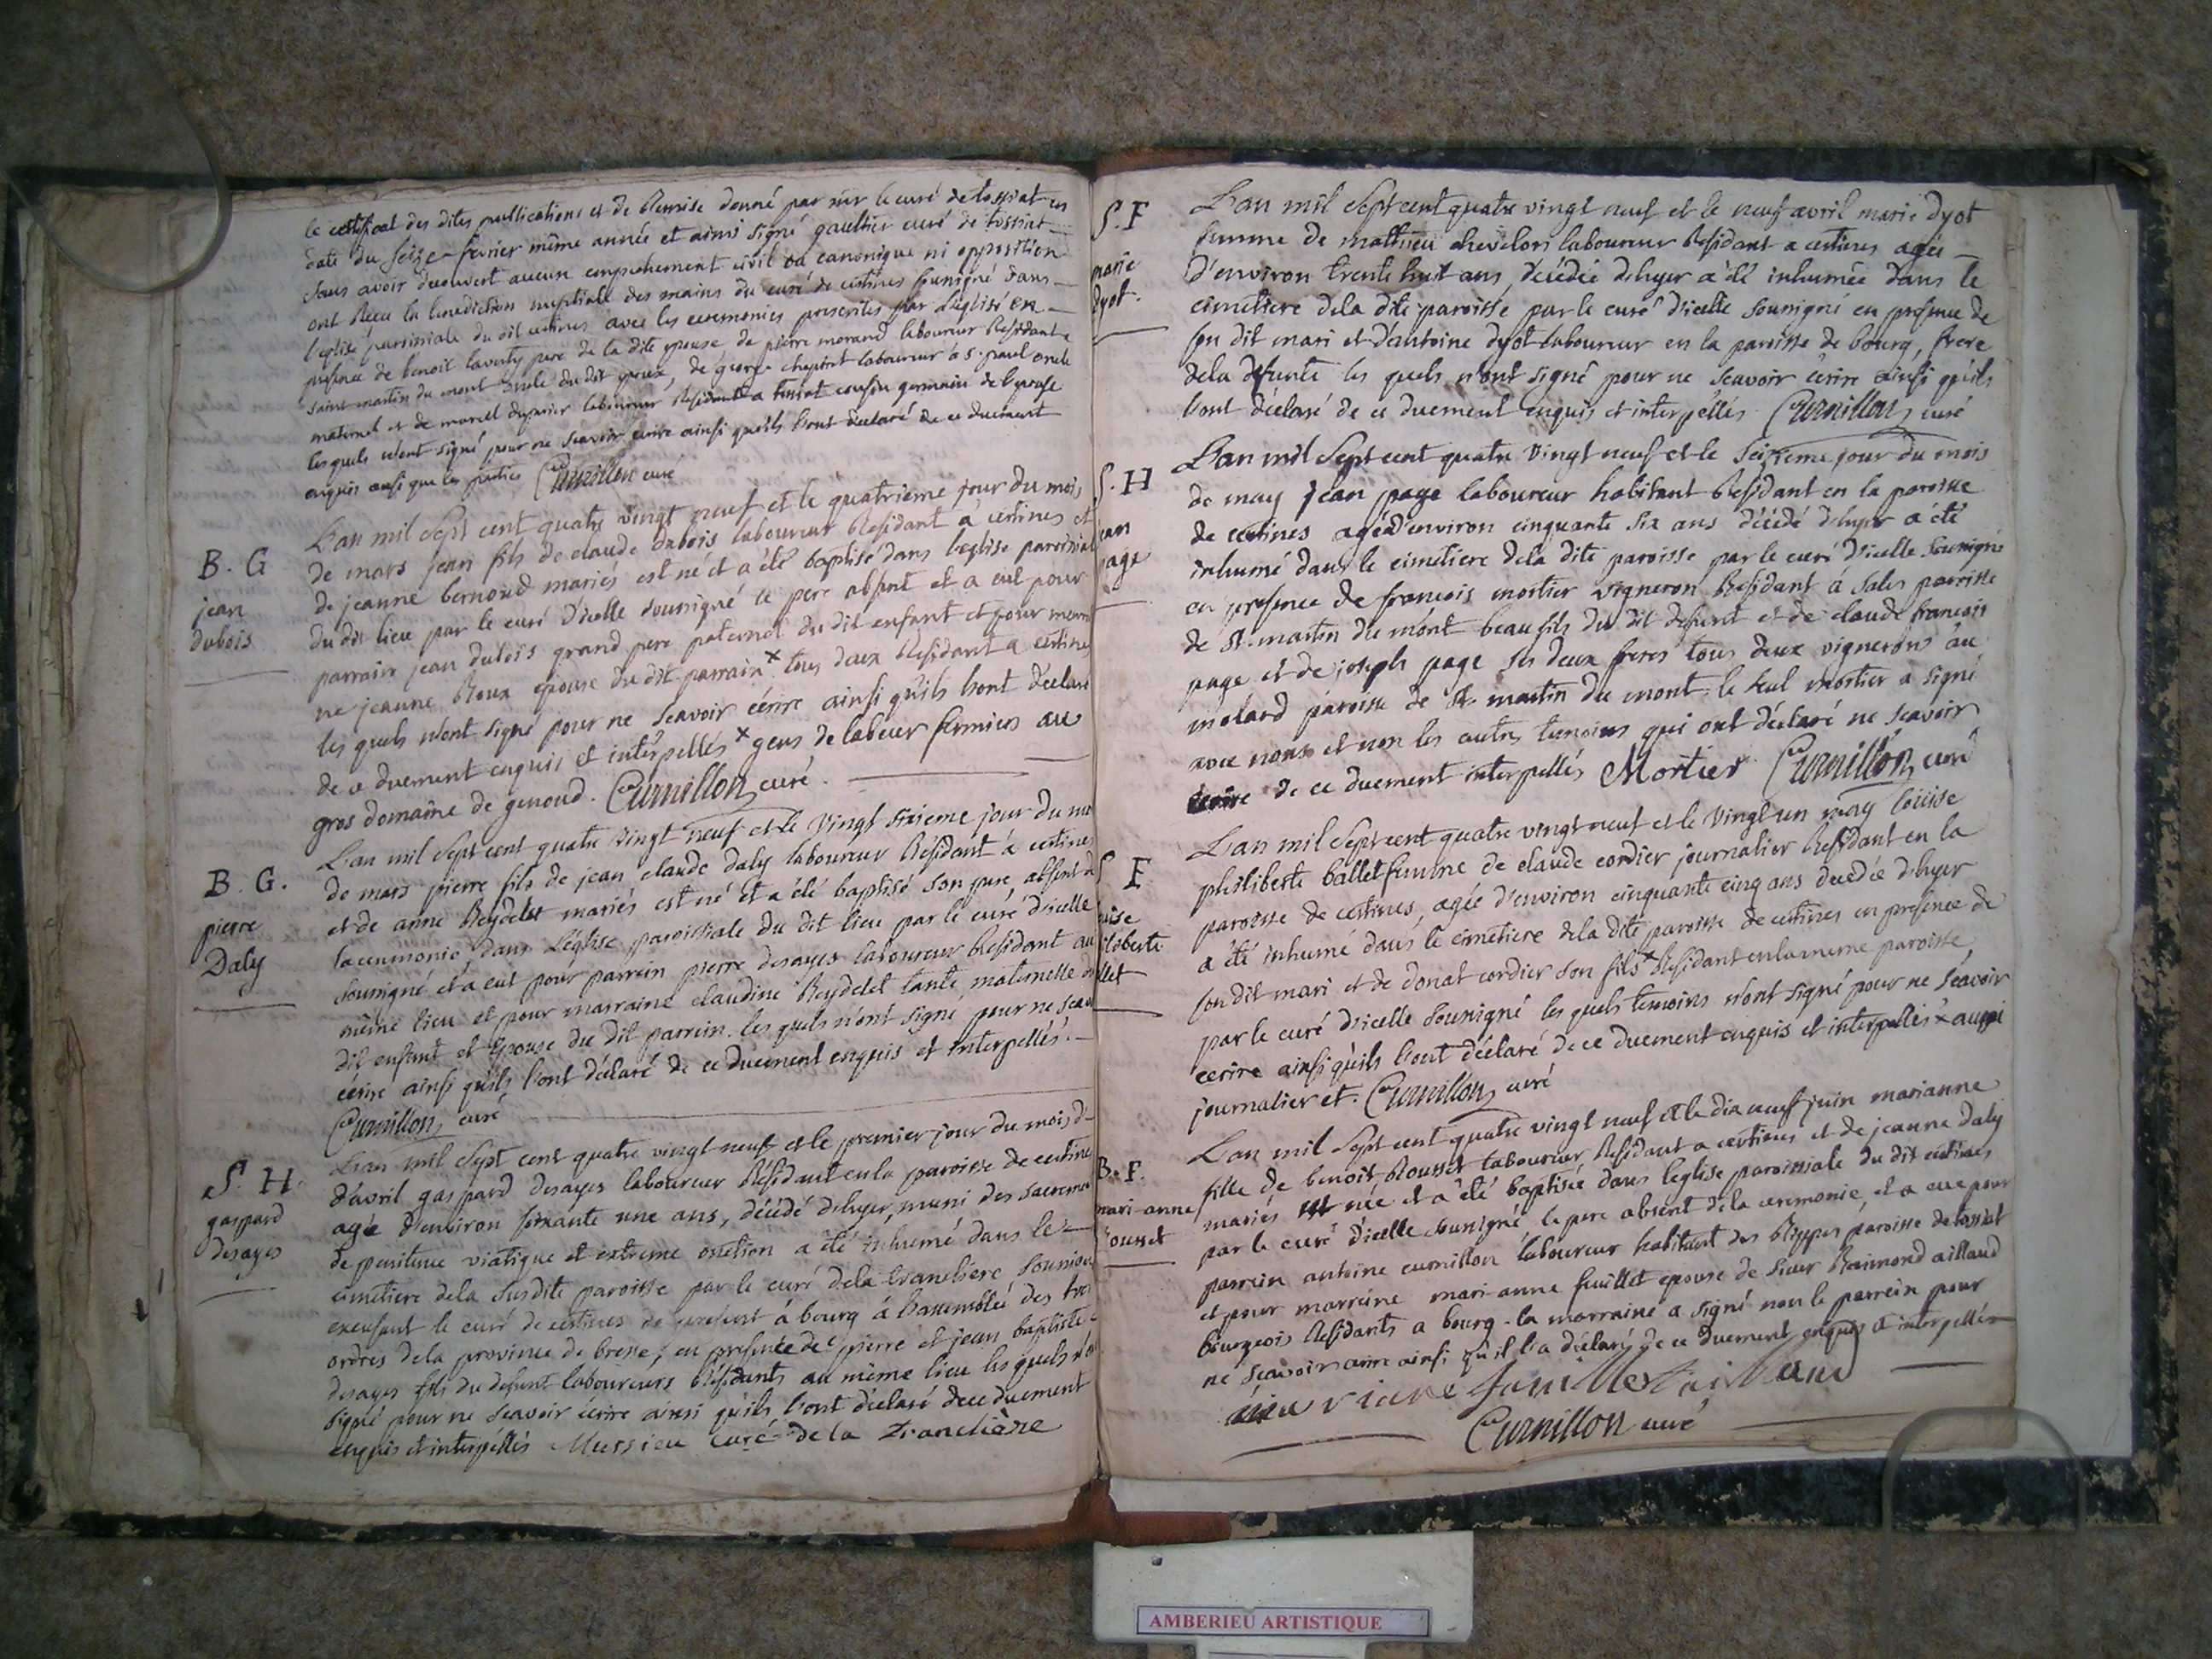 le certificat des dites publications et de Remise donné par sieur le curé de tossiat en
date du seize fevrier même année et ainsi signé gaultier curé de tossiat
sans avoir découvert aucun empechement civil ou canonique ni opposition
ont Recu la benediction nuptiale des mains du curé de certines sousigné dans
l'eglise paroissiale du dit certines avec les ceremonies prescrites par l'eglise en
presence de benoit laverty pere de la dite epouse de pierre morand laboureur Résidant a
saint martin du mont oncle du dit epoux, de george chapint laboureur a s. paul oncle
maternel et de marcel laboureur Résidant a tossiat cousin germain de l'epouse
les quels n'ont signé pour ne scavoir ecrire ainsi qu'ils l'ont déclaré de ce duement
enquis ainsi que les parties Curnillon curé
B. G
jean
dubois
L'an mil sept cent quatre vingt neuf et le quatrieme jour du mois
de mars jean fils de claude dubois laboureur Résidant à certines et
de jeanne bernoud mariés est né et a été baptisé dans l'eglise paroissial
du dit lieu par le curé d'icelle sousigné le pere absent et a eut pour
parrain jean dubois grand pere paternel du dit enfant et pour marrai
ne jeanne Roux epouse du dit parrain x tous deux Résidant a certines
les quels n'ont signé pour ne scavoir écrire ainsi qu'ils l'ont déclaré
de ce duement enquis et interpellés x gens de labeur fermiers au
gros domaine de genoud. Curnillon curé.
B. G.
pierre
Daly
L'an mil sept cent quatre vingt neuf et le vingt sixieme jour du mo
de mars pierre fils de jean claude daly laboureur Résidant à certines
et de anne Reydelet mariés est né et a été baptisé son pere absent d
la ceremonie, dans l'église paroissiale du dit lieu par le curé d'icelle
sousigné et a eut pour parrein pierre desayes laboureur Résidant au
même lieu et pour marraine claudine Reydelet tante maternelle d
dit enfant et epouse du dit parrein. les quels n'ont signé pour ne scav
écrire ainsi qu'ils l'ont déclaré de ce duement enquis et interpellés.
Curnillon curé
S. H.
gaspard
desayes
L'an mil sept cent quatre vingt neuf et le premier jour du mois d
d'avril gaspard desayes laboureur Résidant en la paroisse de certine
agé d'environ soixante une ans, décédé d'hyer, muni des sacremen
de penitence viatique et extreme onction a été inhumé dans le
cimetiere de la susdite paroisse par le curé de la tranclière sousign
excusant le curé de certines de present à bourg à l'assemblée des troi
ordres de la province de bresse; en presence de pierre et jean baptiste
desayes fils du defunt laboureurs Résidants au même lieu les quels n'o
signé pour ne scavoir écrire ainsi qu'ils l'ont déclaré de ce duement
enquis et interpellés Mersieu curé de la Tranclière
S. F
marie
dyot.
L'an mil sept cent quatre vingt neuf et le neuf avril marie dyot
femme de mathieu chevelon laboureur Résidant a certines agée
d'environ trente huit ans, décédée d'hyer a été inhumée dans le
cimetiere de la dite paroisse par le curé d'icelle sousigné en presence de
son dit mari et d'antoine dyot laboureur en la paroisse de bourg, frere
de la defunte les quels n'ont signé pour ne scavoir écrire ainsi qu'ils
l'ont déclaré de ce duement enquis et interpellés Curnillon curé
S. H
jean
page
L'an mil sept cent quatre vingt neuf et le seizieme jour du mois
de may jean page laboureur habitant Résidant en la paroisse
de certines agé d'environ cinquante six ans décédé d'hyer a été
inhumé dans le cimetiere de la dite paroisse par le curé d'icelle sousigné
en presence de francois mortier vigneron Résidant à sales paroisse
de St. martin du mont beau fils du dit defunt et de claude francois
page et de joseph page ses deux freres tous deux vignerons au
molard paroisse de St martin du mont. le seul mortier a signé
avec nous et non les autres temoins qui ont déclaré ne scavoir
écrire de ce duement interpellés Mortier Curnillon curé
S F
ouise
iliberte
llet
L'an mil sept cent quatre vingt neuf et le vingt un may loüise
philiberte ballet femme de claude cordier journalier Résidant en la
paroisse de certines, agée d'environ cinquante cinq ans decedée d'hyer
a été inhumé dans le cimetiere de la dite paroisse de certines en presence de
son dit mari et de donat cordier son fils x Résidant en la meme paroisse,
par le curé d'icelle sousigné les quels temoins n'ont signé pour ne scavoir
ecrire ainsi qu'ils l'ont déclaré de ce duement enquis et interpellés x aussi
journalier et. Curnillon curé
B. F.
mari-anne
Rousset
L'an mil sept cent quatre vingt neuf et le dix neuf juin marianne
fille de benoit Rousset laboureur Résidant a certines et de jeanne daly
mariés est née et a été baptisée dans l'eglise paroissiale du dit certines
par le curé d'icelle sousigné, le pere absent de la ceremonie, et a eue pour
parrein antoine curnillon laboureur habitant des Rippes paroisse de tossiat
et pour marreine mari-anne feuillet epouse de sieur Raimond aillaud
bourgeois Résidants a bourg. la marraine a signé non le parrein pour
ne scavoir ecrire ainsi qu'il l'a déclaré de ce duement enquis et interpellés
Curnillon curé
AMBERIEU ARTISTIQUE